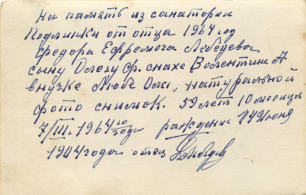 На память из санатории
Подлипки от отца 1964 год
Федора Ефремоча Лебедева
сыну снохе Валентине
внучке натуральной
фото снимок. 59 лет 10 месяцы
7/III. 1964 го года рождение
1904 года отец